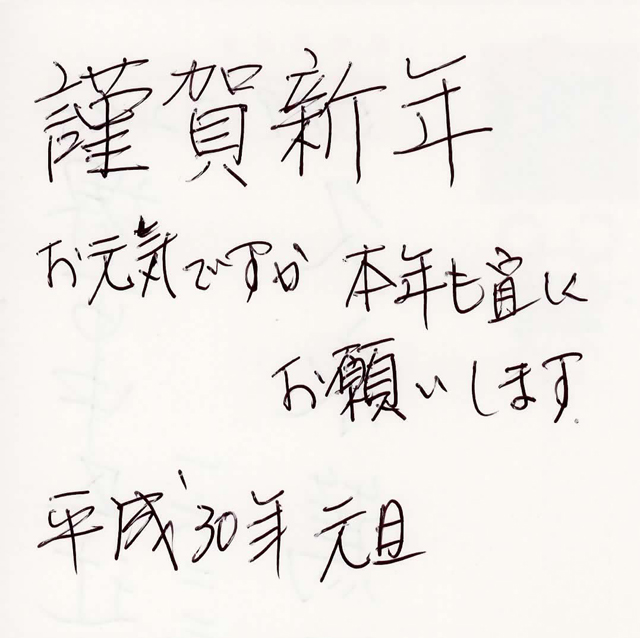 謹賀新年
お元気ですか 本年も宜しく
お願いします
平成30年 元旦